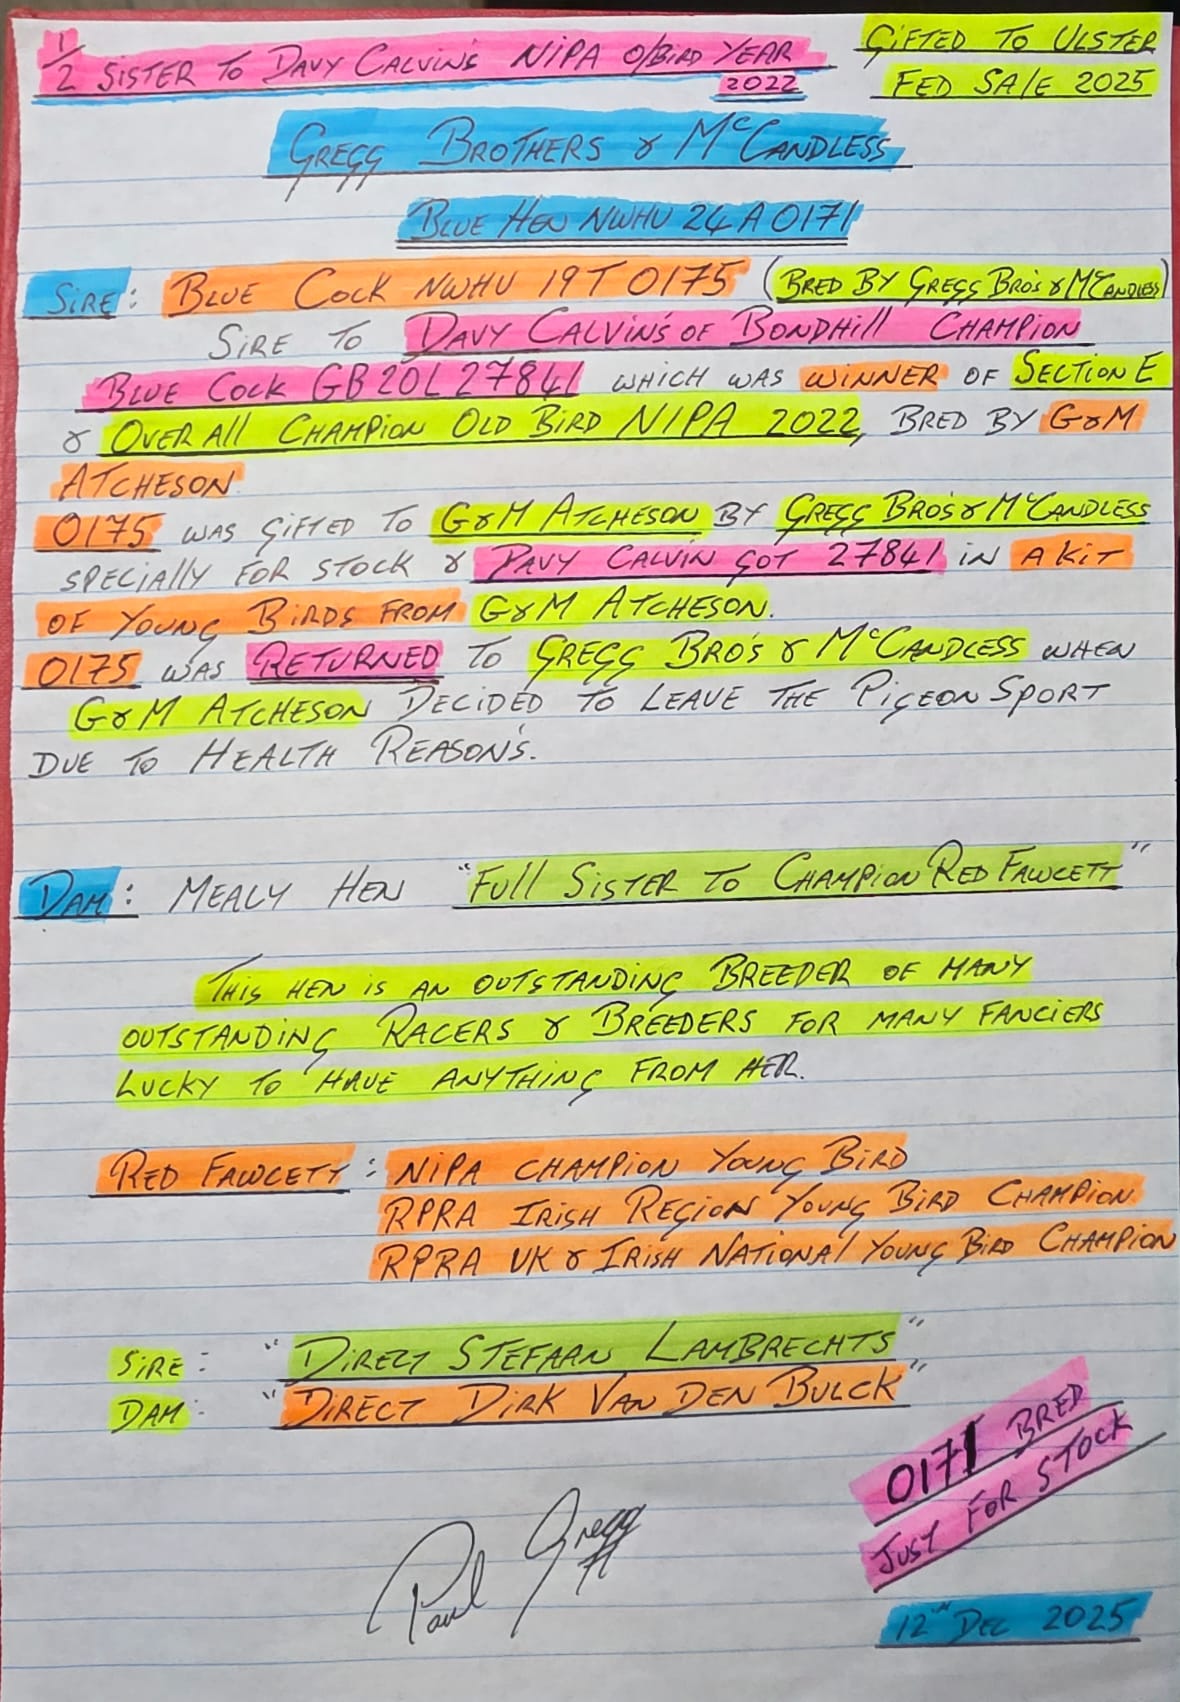 1/2 SISTER TO DAVY CALVIN'S NIPA O/BIRD YEAR
2022
GIFTED TO ULSTER
FED SALE 2025
GREGG BROTHERS & McCANDLESS
BLUE HEN NWHU 24 A 0171
SIRE: BLUE COCK NWHU 19 T 0175 (BRED BY GREGG BRO'S & McCANDLESS)
SIRE TO DAVY CALVIN'S OF BONDHILL CHAMPION
BLUE COCK GB 20 L 27841 WHICH WAS WINNER OF SECTION E
& OVERALL CHAMPION OLD BIRD NIPA 2022, BRED BY G&M
ATCHESON
0175 WAS GIFTED TO G&M ATCHESON BY GREGG BRO'S & McCANDLESS
SPECIALLY FOR STOCK & DAVY CALVIN GOT 27841 IN A KIT
OF YOUNG BIRDS FROM G&M ATCHESON.
0175 WAS RETURNED TO GREGG BRO'S & McCANDLESS WHEN
G&M ATCHESON DECIDED TO LEAVE THE PIGEON SPORT
DUE TO HEALTH REASON'S.
DAM: MEALY HEN "FULL SISTER TO CHAMPION RED FAWCETT"
THIS HEN IS AN OUTSTANDING BREEDER OF MANY
OUTSTANDING RACERS & BREEDERS FOR MANY FANCIERS
LUCKY TO HAVE ANYTHING FROM HER.
RED FAWCETT: NIPA CHAMPION YOUNG BIRD
RPRA IRISH REGION YOUNG BIRD CHAMPION.
RPRA UK & IRISH NATIONAL YOUNG BIRD CHAMPION
SIRE: "DIRECT STEFAAN LAMBRECHTS"
DAM: "DIRECT DIRK VAN DEN BULCK"
0171 BRED
JUST FOR STOCK
Paul Gregg
12TH DEC 2025